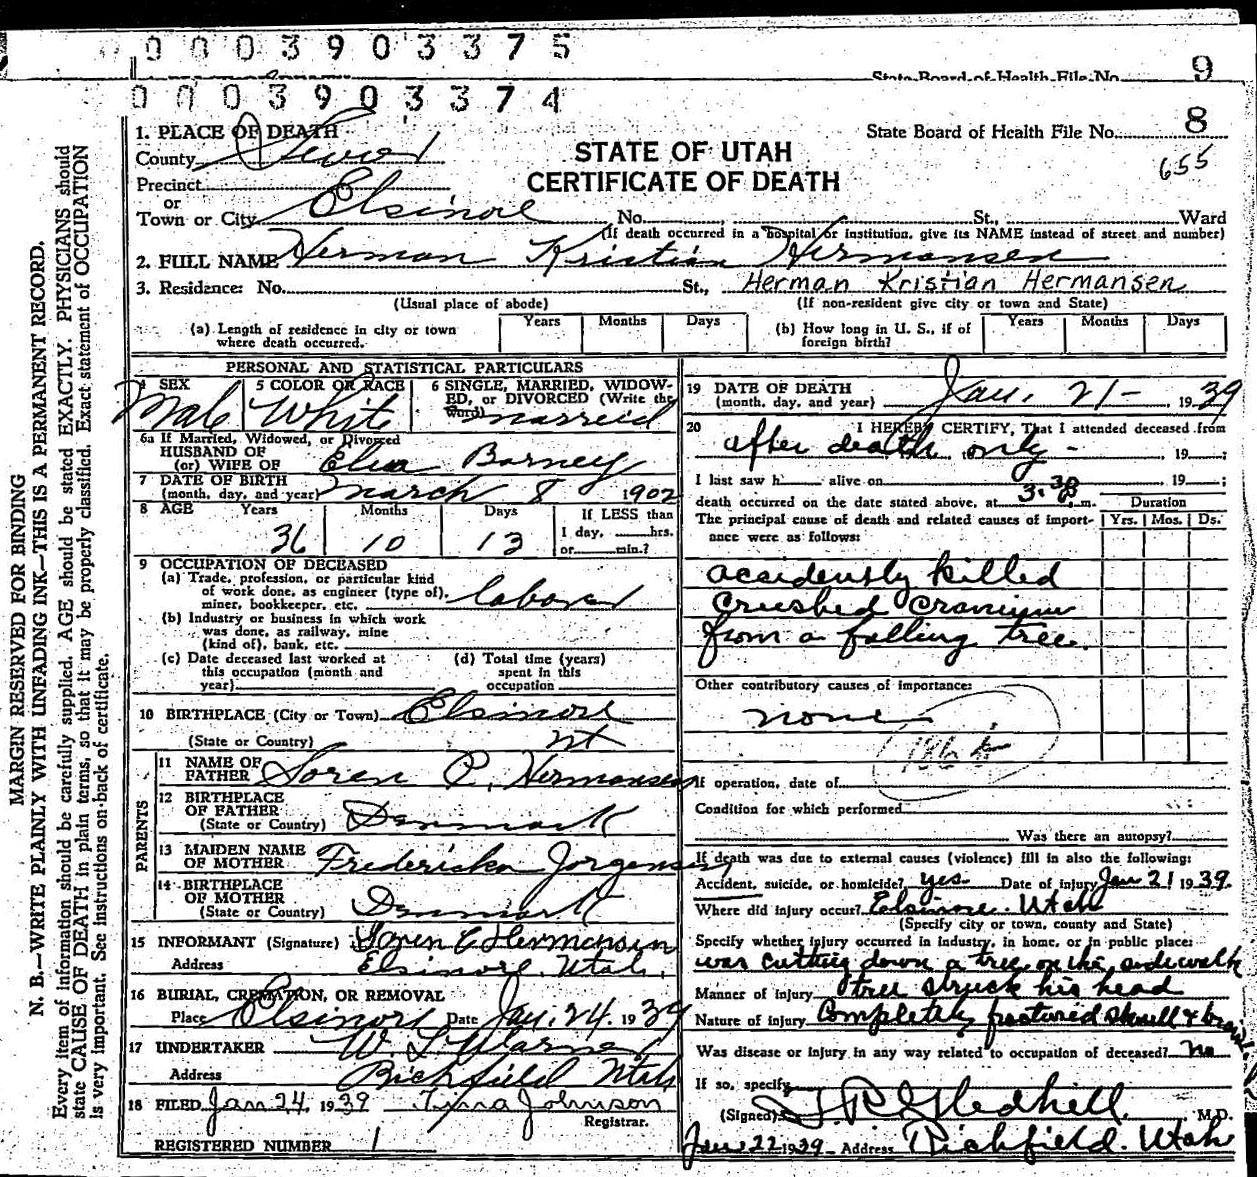 0003903375
State Board of Health File No. 9
0003903374
State Board of Health File No. 8
655
STATE OF UTAH
CERTIFICATE OF DEATH
1. PLACE OF DEATH
County Sevier
Precinct
or
Town or City Elsinore No. , St., Ward
(If death occurred in a hospital or institution, give its NAME instead of street and number)
2. FULL NAME Herman Kristian Hermansen
3. Residence: No. St., Herman Kristian Hermansen
(Usual place of abode) (If non-resident give city or town and State)
(a) Length of residence in city or town where death occurred. Years Months Days
(b) How long in U. S., if of foreign birth? Years Months Days
MARGIN RESERVED FOR BINDING
N. B.—WRITE PLAINLY WITH UNFADING INK—THIS IS A PERMANENT RECORD.
Every item of information should be carefully supplied. AGE should be stated EXACTLY. PHYSICIANS should
state CAUSE OF DEATH in plain terms, so that it may be properly classified. Exact statement of OCCUPATION
is very important. See instructions on back of certificate.
PERSONAL AND STATISTICAL PARTICULARS
4 SEX Male
5 COLOR OR RACE White
6 SINGLE, MARRIED, WIDOW-
ED, or DIVORCED (Write the
word) married
6a If Married, Widowed, or Divorced
HUSBAND OF
(or) WIFE OF Barney
7 DATE OF BIRTH
(month, day, and year) March 8 1902
8 AGE Years Months Days If LESS than
36 10 13 1 day, hrs.
or min.?
9 OCCUPATION OF DECEASED
(a) Trade, profession, or particular kind
of work done, as engineer (type of),
miner, bookkeeper, etc. laborer
(b) Industry or business in which work
was done, as railway, mine
(kind of), bank, etc.
(c) Date deceased last worked at
this occupation (month and
year)
(d) Total time (years)
spent in this
occupation
10 BIRTHPLACE (City or Town) Elsinore
(State or Country) Ut
PARENTS
11 NAME OF
FATHER Soren P. Hermansen
12 BIRTHPLACE
OF FATHER
(State or Country) Denmark
13 MAIDEN NAME
OF MOTHER Fredericka Jorgensen
14 BIRTHPLACE
OF MOTHER
(State or Country) Denmark
15 INFORMANT (Signature) Soren C Hermansen
Address Elsinore, Utah.
16 BURIAL, CREMATION, OR REMOVAL
Place Elsinore Date Jan. 24. 1939
17 UNDERTAKER W. L. Warner
Address Richfield Utah
18 FILED Jan 24, 1939 Tyrra Johnson
Registrar.
REGISTERED NUMBER 1
19 DATE OF DEATH
(month, day, and year) Jan. 21 - 1939
20 I HEREBY CERTIFY, That I attended deceased from
after death only - , 19 ;
I last saw h alive on , 19 ;
death occurred on the date stated above, at 3.30 P.m. Duration
The principal cause of death and related causes of import-
ance were as follows: Yrs. Mos. Ds.
accidently killed
Crushed Cranium
from a falling tree.
Other contributory causes of importance:
none
If operation, date of
Condition for which performed
Was there an autopsy?
If death was due to external causes (violence) fill in also the following:
Accident, suicide, or homicide? yes Date of injury Jan 21 1939.
Where did injury occur? Elsinore. Utah
(Specify city or town, county and State)
Specify whether injury occurred in industry, in home, or in public place:
was cutting down a tree on the sidewalk
Manner of injury tree struck his head
Nature of injury Completely fractured skull &
Was disease or injury in any way related to occupation of deceased? no
If so, specify
(Signed) Gledhill. M.D.
Jan 22 1939 Address Richfield. Utah